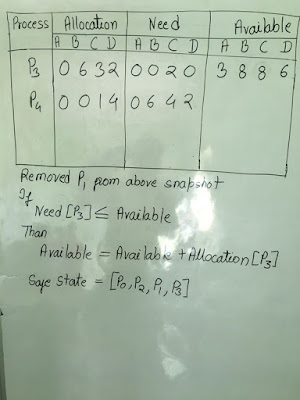 Process Allocation Need Available
A B C D A B C D A B C D
P3 0 6 3 2 0 0 2 0 3 8 8 6
P4 0 0 1 4 0 6 4 2
Removed P1 from above snapshot
If
Need [P3] ≤ Available
Than
Available = Available + Allocation [P3]
Safe State = [P0, P2, P1, P3]